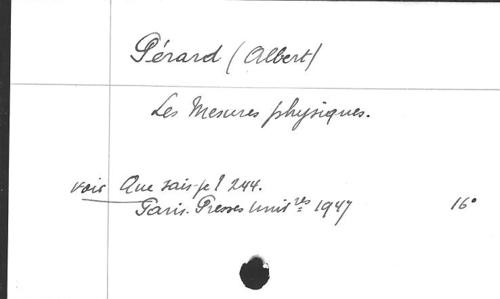 Pérard (Albert)
Les Mesures physiques.
voir Que sais-je? 244.
Paris. Presses Univres 1947 16°